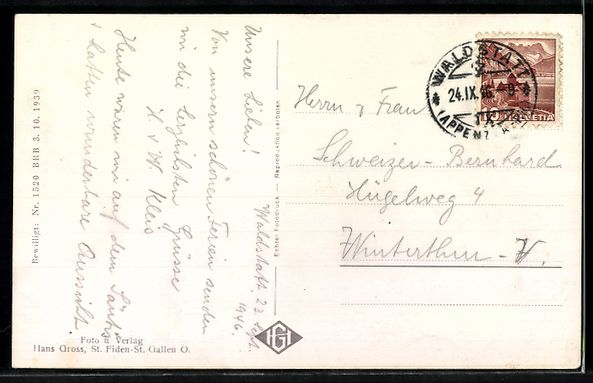 Waldstatt, 23. Sept.
1946.
Unsere Lieben!
Von unsern schönen Ferien senden
wir die herzlichsten Grüsse
Kleis
Heute waren wir auf dem Säntis
hatten wunderbare Aussicht.
Herrn u Frau
Schweizer-Bernhard
Hügelweg 4
Winterthur
WALDSTATT
24.IX.46.-9
(APPENZ
HELVETIA
Echte Fotodruck — Reproduktion verboten
HGI
Bewilligt: Nr. 1520 BRB 3. 10. 1939
Foto u Verlag
Hans Gross, St. Fiden-St. Gallen O.